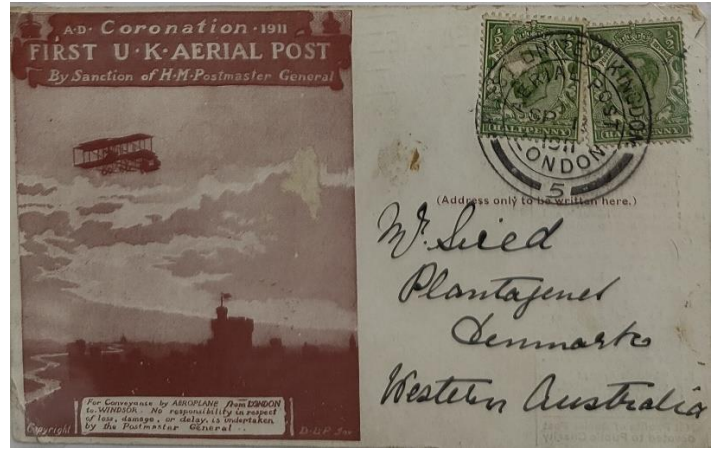 A·D· Coronation · 1911
FIRST U·K·AERIAL POST
By Sanction of H·M·Postmaster General
For Conveyance by AEROPLANE from LONDON
to WINDSOR. No responsibility in respect
of loss, damage, or delay, is undertaken
by the Postmaster General
Copyright
HALFPENNY
HALFPENNY
FIRST UNITED KINGDOM
AERIAL POST
SP
1911
LONDON
5
(Address only to be written here.)
Mr
Plantagenet
Denmark
Western Australia